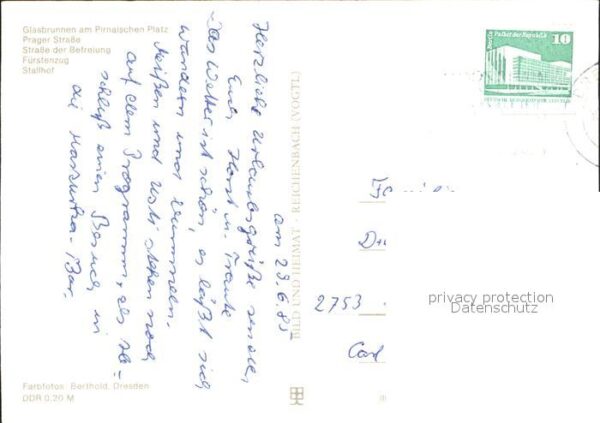 Glasbrunnen am Pirnaischen Platz
Prager Straße
Straße der Befreiung
Fürstenzug
Stallhof
am 23.6.85
Herzliche Urlaubsgrüße senden
Euch Horst u. Traute
Das Wetter ist schön, es läßt sich
wandern und bummeln.
Meißen und stehen noch
auf dem Programm, als Ab-
schluß einen Besuch in
die Bar.
BILD UND HEIMAT · REICHENBACH (VOGTL)
Berlin, Palast der Republik
10
DEUTSCHE DEMOKRATISCHE REPUBLIK
2753
privacy protection
Datenschutz
Farbfotos: Berthold, Dresden
DDR 0,20 M